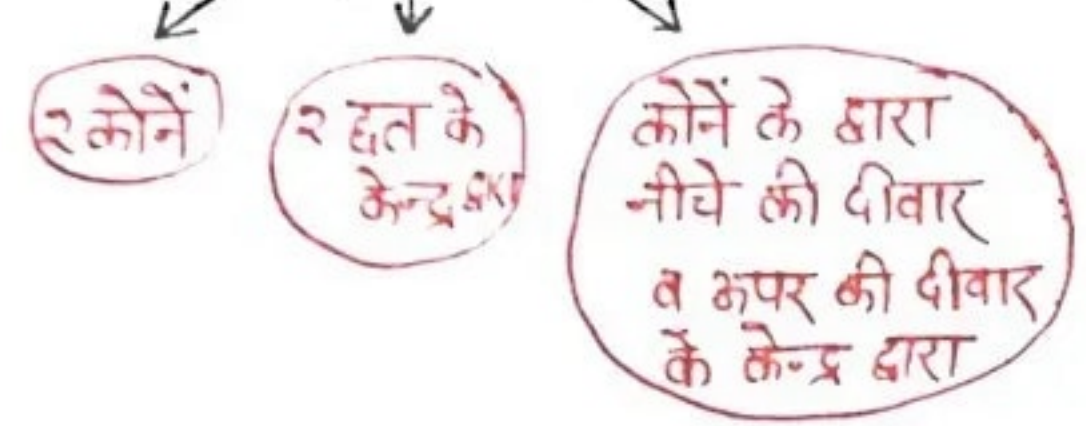 २ कोनें
२ छत के
केन्द्र द्वारा
कोनें के द्वारा
नीचे की दीवार
व ऊपर की दीवार
के केन्द्र द्वारा